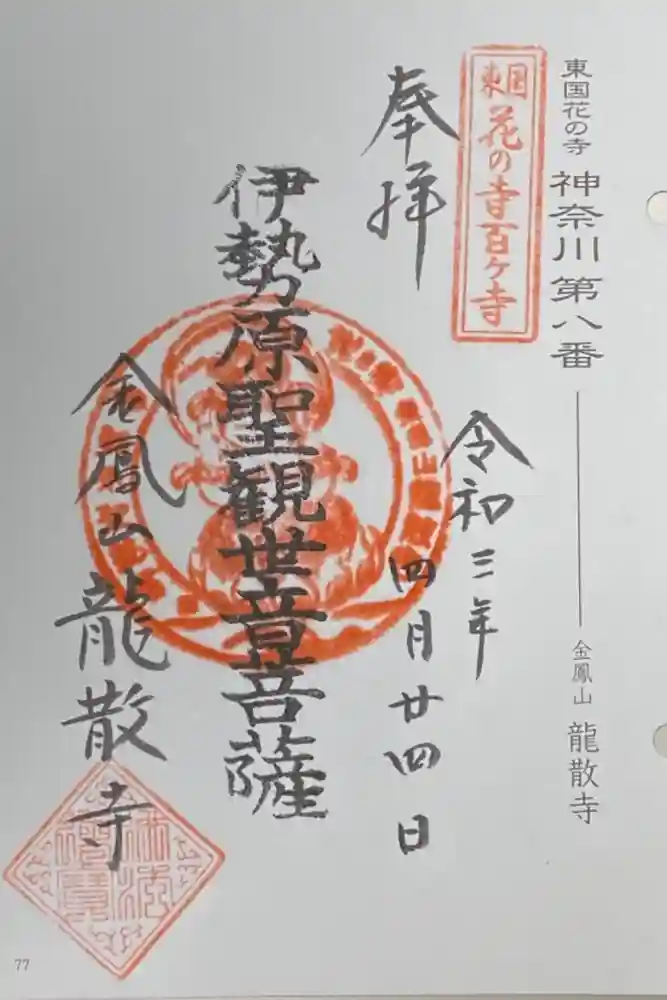 東国花の寺 神奈川第八番 金鳳山 龍散寺
東国花の寺百ケ寺
奉拝
令和三年
四月廿四日
伊勢原聖観世音菩薩
金鳳山龍散寺
77